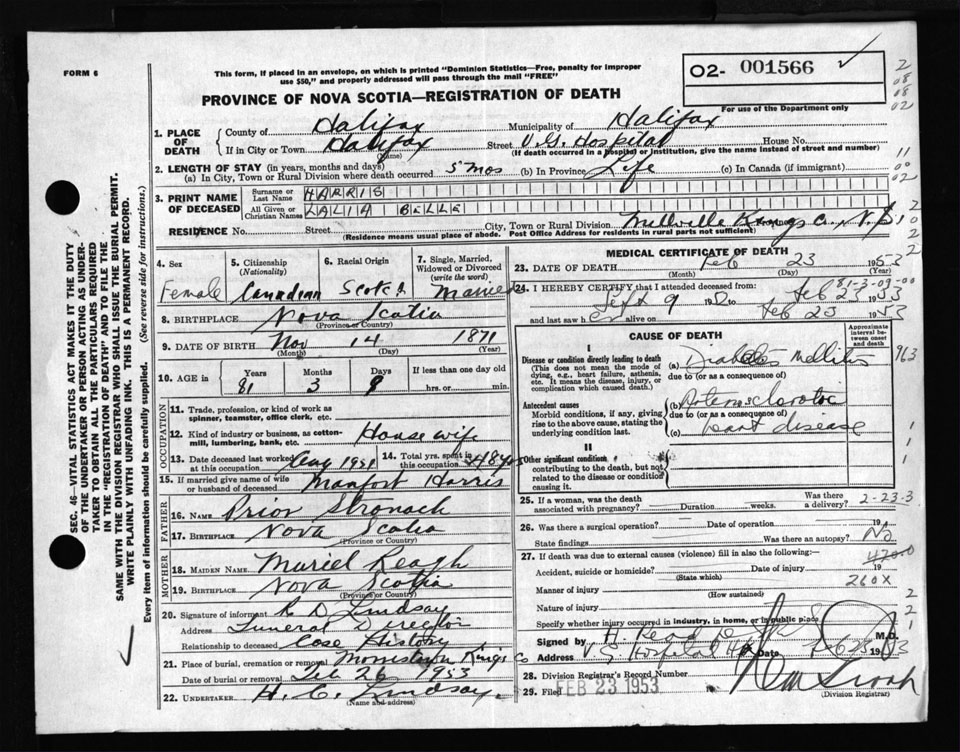 FORM 6
This form, if placed in an envelope, on which is printed "Dominion Statistics—Free, penalty for improper
use $50," and properly addressed will pass through the mail "FREE"
O2- 001566
For use of the Department only
PROVINCE OF NOVA SCOTIA—REGISTRATION OF DEATH
1. PLACE OF DEATH
County of Halifax Municipality of Halifax
If in City or Town Halifax (Name) Street V.G. Hospital House No.
(If death occurred in a hospital or institution, give the name instead of street and number)
2. LENGTH OF STAY (in years, months and days)
(a) In City, Town or Rural Division where death occurred 5 mos (b) In Province Life (c) In Canada (if immigrant)
3. PRINT NAME OF DECEASED
Surname or Last Name HARRIS
All Given or Christian Names LALIA BELLE
RESIDENCE No. Street City, Town or Rural Division Millville Kings Co. N.S.
(Residence means usual place of abode. Post Office Address for residents in rural parts not sufficient)
4. Sex Female
5. Citizenship (Nationality) Canadian
6. Racial Origin Scotch
7. Single, Married, Widowed or Divorced (write the word) Married
8. BIRTHPLACE Nova Scotia
(Province or Country)
9. DATE OF BIRTH Nov 14 1871
(Month) (Day) (Year)
10. AGE in Years 81 Months 3 Days 8 If less than one day old hrs. or min.
OCCUPATION
11. Trade, profession, or kind of work as spinner, teamster, office clerk, etc.
12. Kind of industry or business, as cotton-mill, lumbering, bank, etc. House wife
13. Date deceased last worked at this occupation Aug 1951
14. Total yrs. spent in this occupation 48 yrs
15. If married give name of wife or husband of deceased Manfort Harris
FATHER
16. NAME Prior Stronach
17. BIRTHPLACE Nova Scotia
(Province or Country)
MOTHER
18. MAIDEN NAME Muriel Reagh
19. BIRTHPLACE Nova Scotia
(Province or Country)
20. Signature of informant R. D. Lindsay
Address Funeral Director
Relationship to deceased Case History
21. Place of burial, cremation or removal Morristown Kings Co
Date of burial or removal Feb 26 1953
22. UNDERTAKER H. C. Lindsay.
(Name and address)
MEDICAL CERTIFICATE OF DEATH
23. DATE OF DEATH Feb 23 1953
(Month) (Day) (Year)
81-3-09-00
24. I HEREBY CERTIFY that I attended deceased from:
Sept 9 1952 to Feb 23 1953
and last saw her alive on Feb 23 1953
CAUSE OF DEATH
Approximate interval between onset and death
I
Disease or condition directly leading to death
(This does not mean the mode of dying, e.g., heart failure, asthenia, etc. It means the disease, injury, or complication which caused death.)
(a) Diabetes Mellitus 963
due to (or as a consequence of)
Antecedent causes
Morbid conditions, if any, giving rise to the above cause, stating the underlying condition last.
(b) Arteriosclerotic
due to (or as a consequence of)
(c) heart disease
II
Other significant conditions
contributing to the death, but not related to the disease or condition causing it.
25. If a woman, was the death associated with pregnancy? Duration weeks. Was there a delivery?
2-23-3
26. Was there a surgical operation? Date of operation 19
State findings Was there an autopsy? No
27. If death was due to external causes (violence) fill in also the following:
Accident, suicide or homicide? (State which) Date of injury 19
260X
Manner of injury (How sustained)
Nature of injury
Specify whether injury occurred in industry, in home, or in public place
Signed by H. Read M.D.
Address V.G. Hospital Hfx Date Feb 23 1953
28. Division Registrar's Record Number
29. Filed FEB 23 1953
(Division Registrar)
SEC. 46—VITAL STATISTICS ACT MAKES IT THE DUTY OF THE UNDERTAKER OR PERSON ACTING AS UNDERTAKER TO OBTAIN ALL THE PARTICULARS REQUIRED IN THE "REGISTRATION OF DEATH" AND TO FILE THE SAME WITH THE DIVISION REGISTRAR WHO SHALL ISSUE THE BURIAL PERMIT.
WRITE PLAINLY WITH UNFADING INK. THIS IS A PERMANENT RECORD.
Every item of information should be carefully supplied. (See reverse side for instructions.)